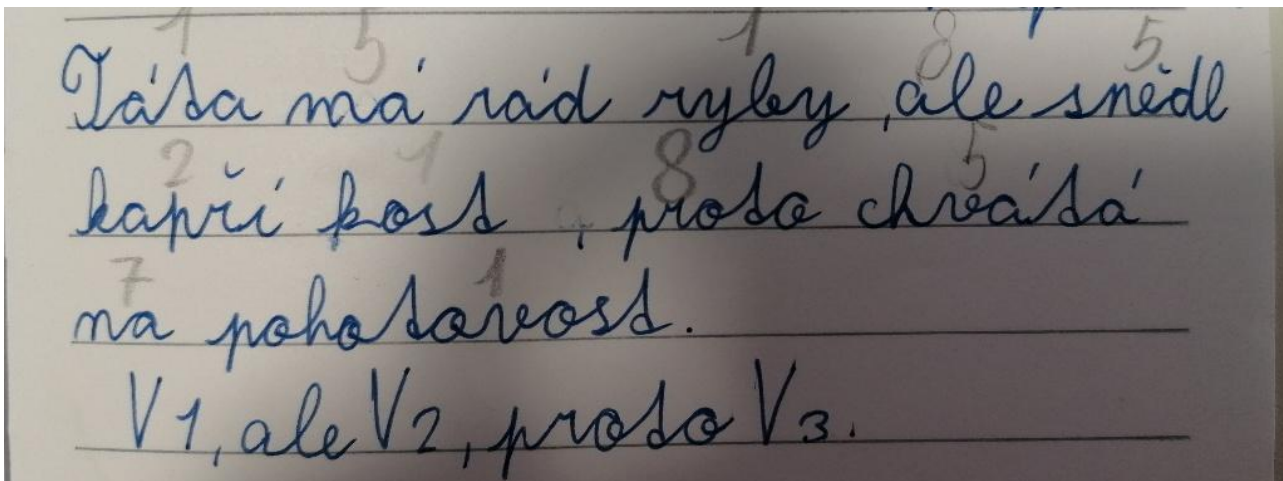 1 5 1 8 5
Táta má rád ryby, ale snědl
2 1 8 5
kapří kost, proto chvátá
7 1
na pohotovost.
V1, ale V2, proto V3.